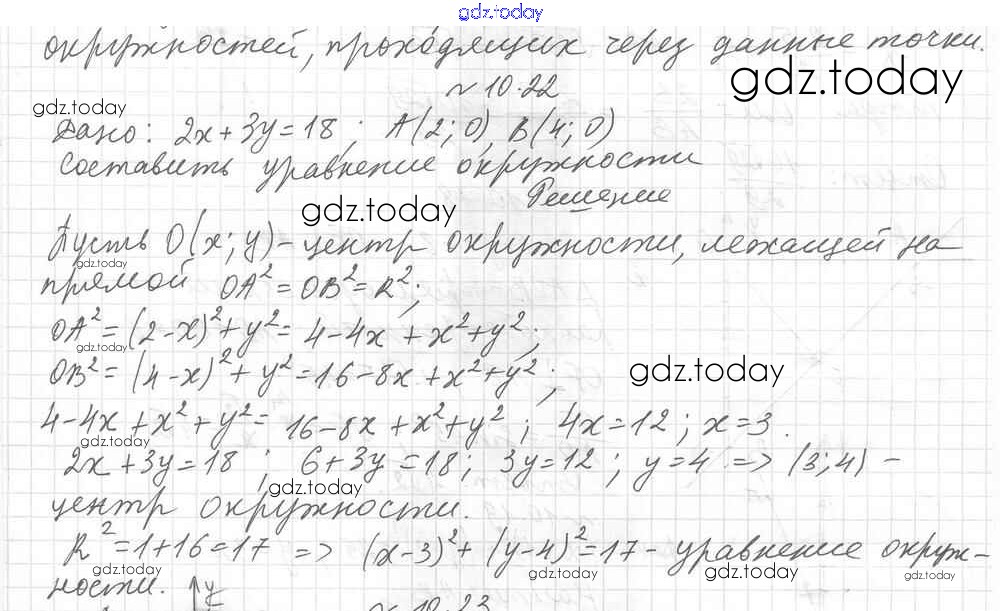 gdz.today
окружностей, проходящих через данные точки.
gdz.today
№ 10.22
gdz.today
Дано: 2x+3y=18; A(2;0), B(4;0)
составить уравнение окружности
Решение
gdz.today
Пусть O(x;y)-центр окружности, лежащей на
gdz.today
прямой OA²=OB²=R²;
OA²=(2-x)²+y²=4-4x+x²+y²;
gdz.today
OB²=(4-x)²+y²=16-8x+x²+y²;
gdz.today
4-4x+x²+y²=16-8x+x²+y²; 4x=12; x=3.
gdz.today
2x+3y=18; 6+3y=18; 3y=12; y=4 => (3;4)-
gdz.today
центр окружности.
R²=1+16=17 => (x-3)²+(y-4)²=17-уравнение окруж-
gdz.today gdz.today gdz.today gdz.today
ности. y
№ 10.23